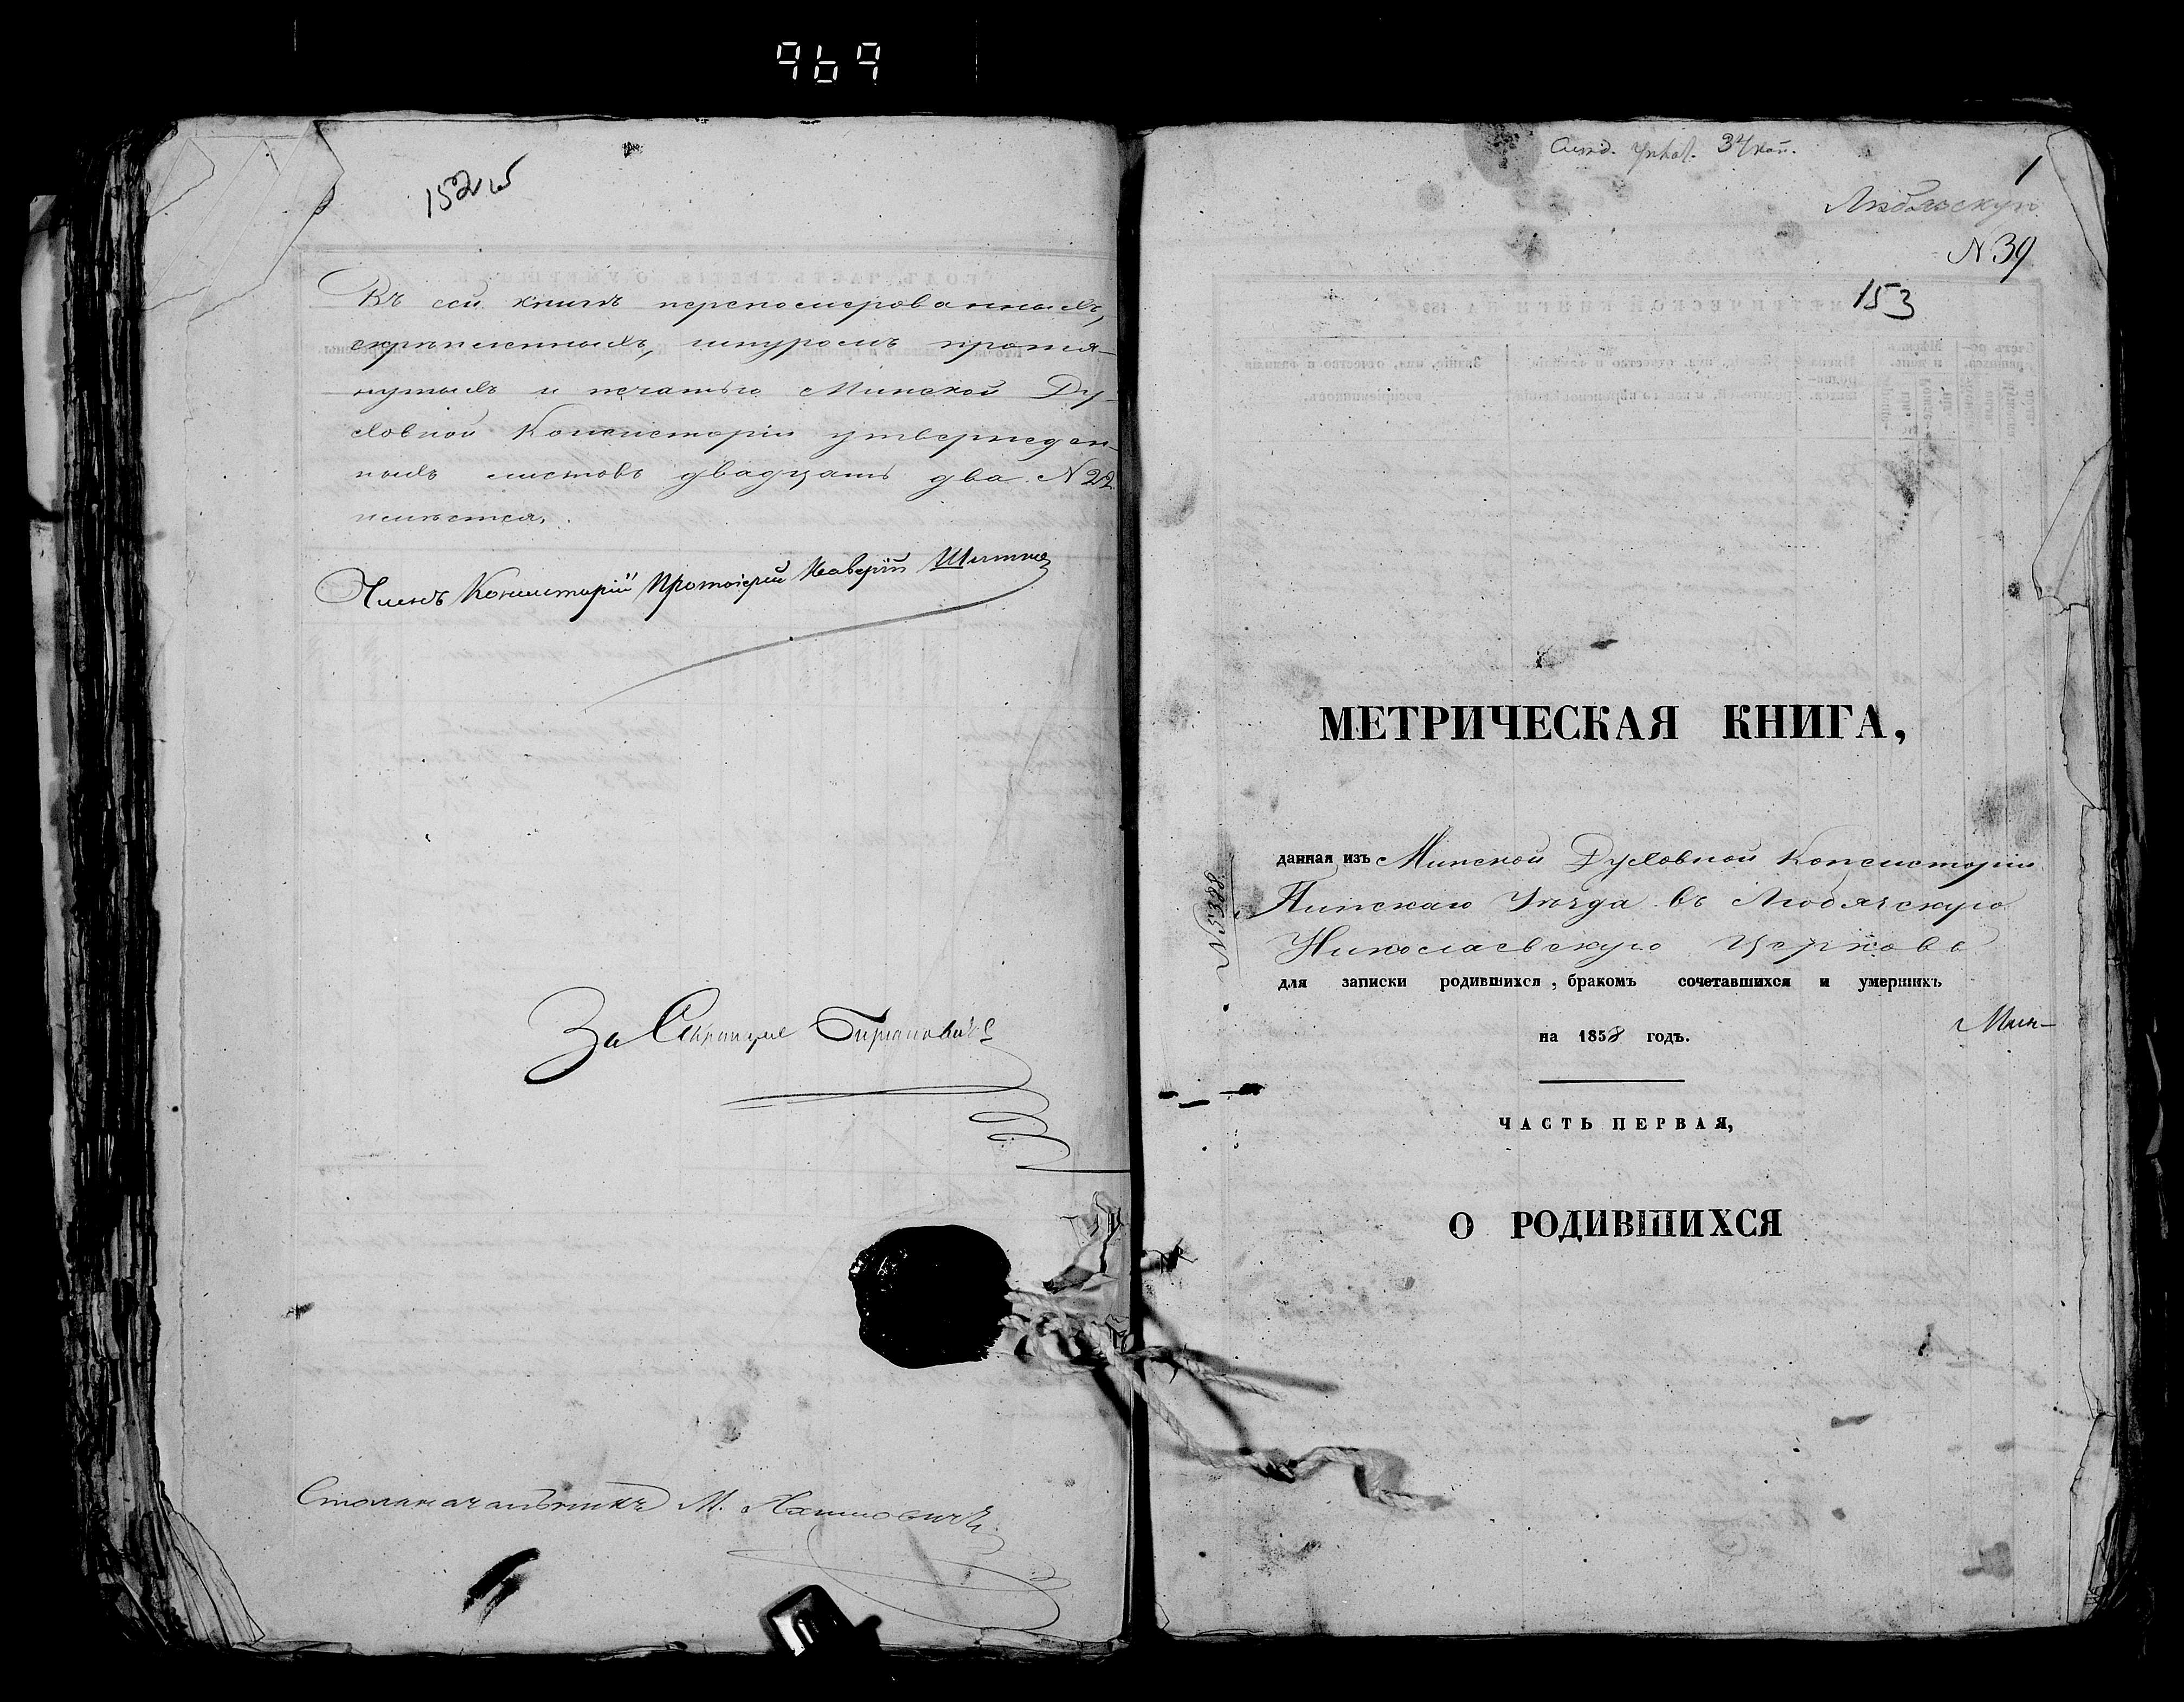 969
152 об
Въ сей книгѣ перенумерованныхъ,
скрѣпленныхъ, шнуромъ протя-
нутыхъ и печатью Минской Ду-
ховной Консисторіи утвержден-
ныхъ листовъ двадцать два N 22
имѣется.
Членъ Консисторіи Протоіерей
За Секретаря
Столоначальникъ М.
34 коп.
1
N 39
153
МЕТРИЧЕСКАЯ КНИГА,
данная изъ Минской Духовной Консисторіи
Пинскаго Уѣзда въ Любячскую
Николаевскую Церковь
для записки родившихся, бракомъ сочетавшихся и умершихъ
на 1858 годъ.
Мин-
N 5388
ЧАСТЬ ПЕРВАЯ,
О РОДИВШИХСЯ